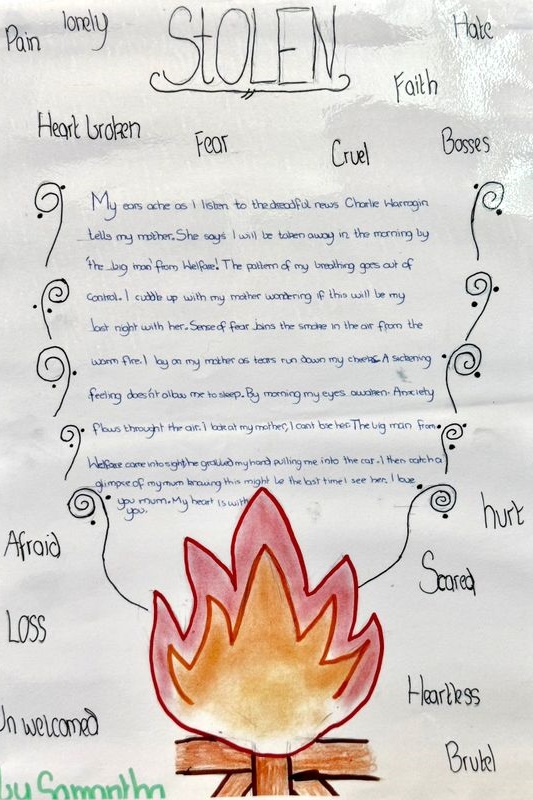 Pain
lonely
STOLEN
Hate
Faith
Heart broken
Fear
Cruel
Bosses
My ears ache as I listen to the dreadful news Charlie Warragin
tells my mother. She says I will be taken away in the morning by
'the big man' from Welfare! The pattern of my breathing goes out of
control. I cuddle up with my mother wondering if this will be my
last night with her. Sense of fear joins the smoke in the air from the
warm fire. I lay on my mother as tears run down my cheeks. A sickening
feeling does'nt allow me to sleep. By morning my eyes awaken. Anxiety
flows throught the air. I look at my mother, I cant lose her. The big man from
Welfare came into sight, he grabbed my hand pulling me into the car. I then catch a
glimpse of my mum knowing this might be the last time I see her. I love
you mum. My heart is with
you.
hurt
Afraid
Scared
LOSS
Heartless
Un welcomed
Brutel
by Samantha